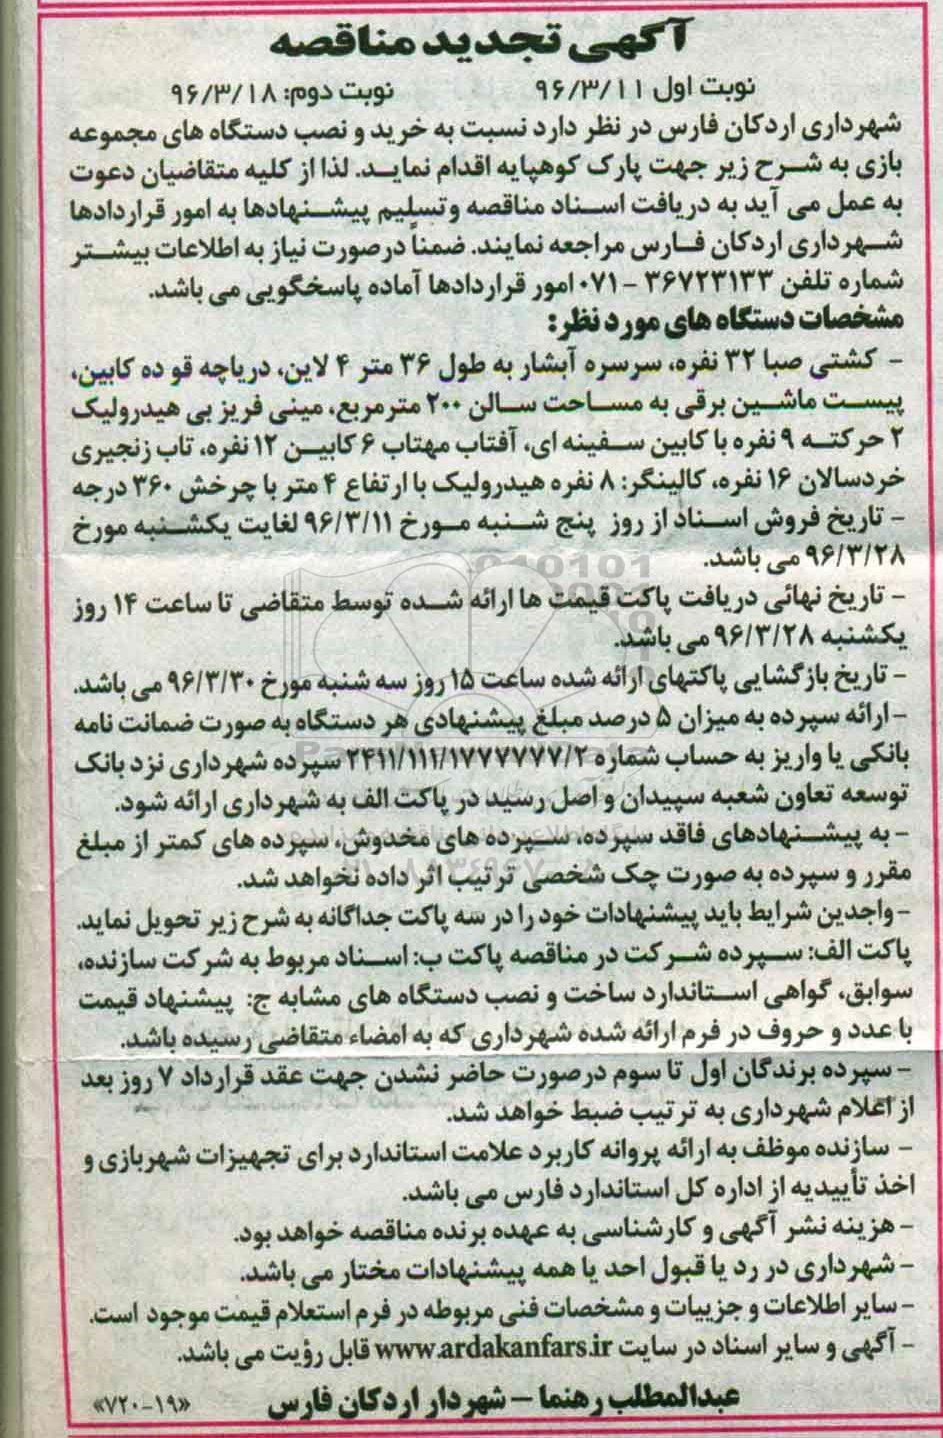 آگهی تجدید مناقصه
نوبت اول ۹۶/۳/۱۱ نوبت دوم: ۹۶/۳/۱۸
شهرداری اردکان فارس در نظر دارد نسبت به خرید و نصب دستگاه های مجموعه
بازی به شرح زیر جهت پارک کوهپایه اقدام نماید. لذا از کلیه متقاضیان دعوت
به عمل می آید به دریافت اسناد مناقصه وتسلیم پیشنهادها به امور قراردادها
شهرداری اردکان فارس مراجعه نمایند. ضمناً درصورت نیاز به اطلاعات بیشتر
شماره تلفن ۳۶۷۲۳۱۳۳ - ۰۷۱ امور قراردادها آماده پاسخگویی می باشد.
مشخصات دستگاه های مورد نظر:
- کشتی صبا ۳۲ نفره، سرسره آبشار به طول ۳۶ متر ۴ لاین، دریاچه قو ده کابین،
پیست ماشین برقی به مساحت سالن ۲۰۰ مترمربع، مینی فریز بی هیدرولیک
۲ حرکته ۹ نفره با کابین سفینه ای، آفتاب مهتاب ۶ کابین ۱۲ نفره، تاب زنجیری
خردسالان ۱۶ نفره، کالینگر: ۸ نفره هیدرولیک با ارتفاع ۴ متر با چرخش ۳۶۰ درجه
- تاریخ فروش اسناد از روز پنج شنبه مورخ ۹۶/۳/۱۱ لغایت یکشنبه مورخ
۹۶/۳/۲۸ می باشد.
- تاریخ نهائی دریافت پاکت قیمت ها ارائه شده توسط متقاضی تا ساعت ۱۴ روز
یکشنبه ۹۶/۳/۲۸ می باشد.
- تاریخ بازگشایی پاکتهای ارائه شده ساعت ۱۵ روز سه شنبه مورخ ۹۶/۳/۳۰ می باشد.
- ارائه سپرده به میزان ۵ درصد مبلغ پیشنهادی هر دستگاه به صورت ضمانت نامه
بانکی یا واریز به حساب شماره ۲۴۱۱/۱۱۱/۱۷۷۷۷۷۷/۲ سپرده شهرداری نزد بانک
توسعه تعاون شعبه سپیدان و اصل رسید در پاکت الف به شهرداری ارائه شود.
- به پیشنهادهای فاقد سپرده، سپرده های مخدوش، سپرده های کمتر از مبلغ
مقرر و سپرده به صورت چک شخصی ترتیب اثر داده نخواهد شد.
- واجدین شرایط باید پیشنهادات خود را در سه پاکت جداگانه به شرح زیر تحویل نماید.
پاکت الف: سپرده شرکت در مناقصه پاکت ب: اسناد مربوط به شرکت سازنده،
سوابق، گواهی استاندارد ساخت و نصب دستگاه های مشابه ج: پیشنهاد قیمت
با عدد و حروف در فرم ارائه شده شهرداری که به امضاء متقاضی رسیده باشد.
- سپرده برندگان اول تا سوم درصورت حاضر نشدن جهت عقد قرارداد ۷ روز بعد
از اعلام شهرداری به ترتیب ضبط خواهد شد.
- سازنده موظف به ارائه پروانه کاربرد علامت استاندارد برای تجهیزات شهربازی و
اخذ تأییدیه از اداره کل استاندارد فارس می باشد.
- هزینه نشر آگهی و کارشناسی به عهده برنده مناقصه خواهد بود.
- شهرداری در رد یا قبول احد یا همه پیشنهادات مختار می باشد.
- سایر اطلاعات و جزییات و مشخصات فنی مربوطه در فرم استعلام قیمت موجود است.
- آگهی و سایر اسناد در سایت www.ardakanfars.ir قابل رؤیت می باشد.
عبدالمطلب رهنما - شهردار اردکان فارس «۷۲۰-۱۹»